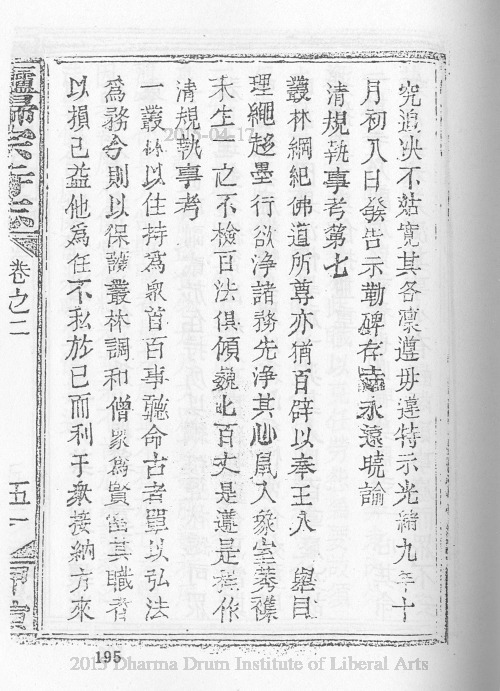 究追決不姑寬其各凛遵毋違特示光緒九年十
月初八日發告示勒碑存寺永遠曉諭
清規執事考第七
叢林綱紀佛道所尊亦猶百辟以奉王人　舉目
理繩趍墨行欲浄諸務先浄其心鼠入象室莠襍
禾生一之不檢百法俱傾巍巍百丈是遵是作
清規執事考
一叢林以住持為衆首百事聽命古者單以弘法
為務今則以保護叢林調和僧衆為賢當其職者
以損已益他為任不私於已而利于衆接納方來
卷之二
五一
195
2013-04-17
2013 Dharma Drum Institute of Liberal Arts